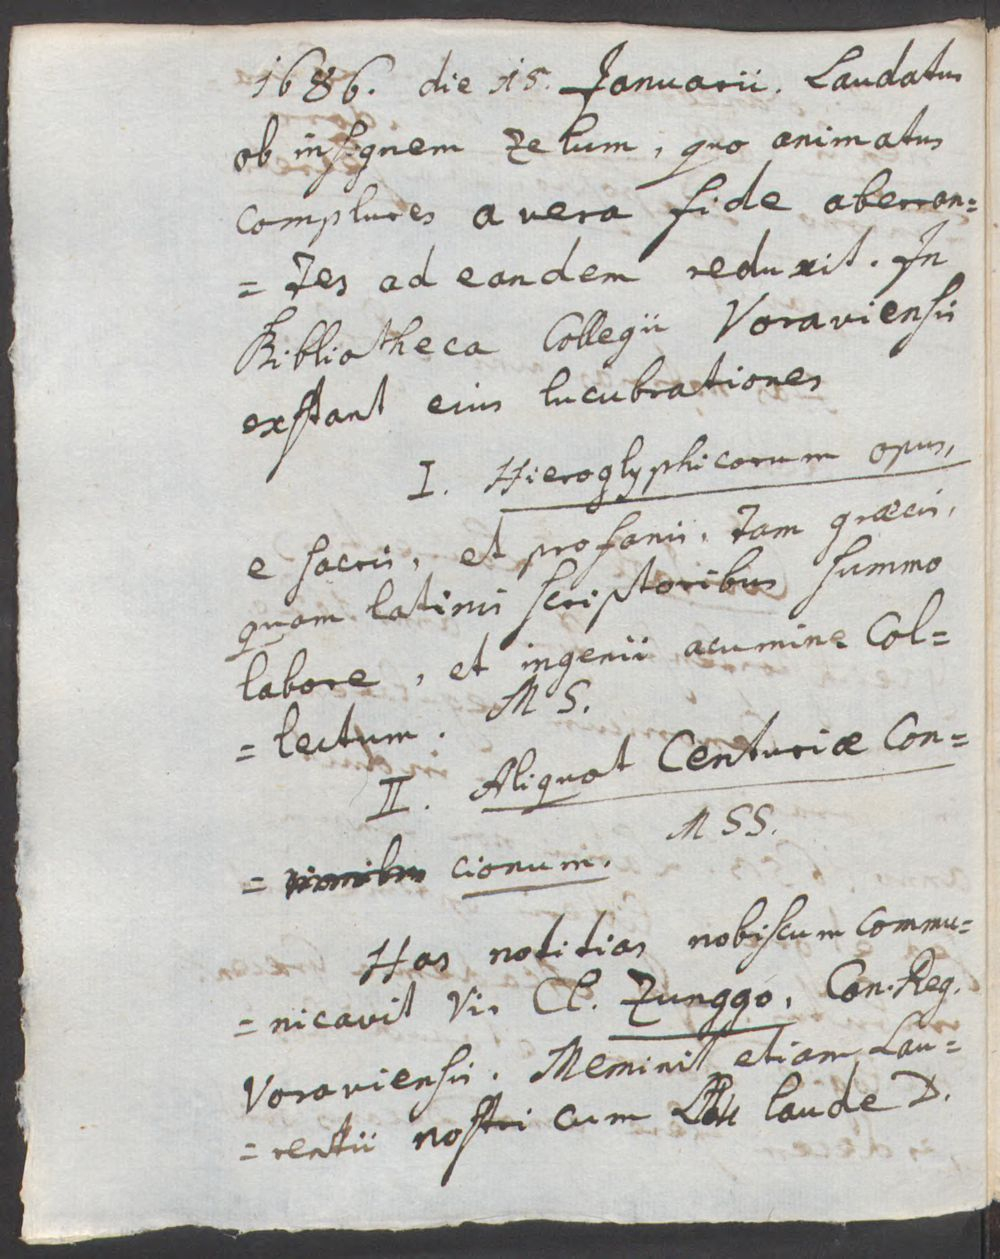 1686. die 15. Januarii. Laudatus
ob insignem zelum, quo animatus
complures a vera fide aberran=
= tes ad eandem reduxit. In
Bibliotheca Collegii Voraviensis
exstant eius lucubrationes
I. Hieroglyphicorum opus,
e sacris, et profanis, tam græcis,
quam latinis scriptoribus summo
labore, et ingenii acumine Col=
= lectum. MS.
II. Aliquot Centuriæ Con=
= cionum. MSS.
Has notitias nobiscum commu=
= nicavit Vir Cl. Zunggo, Can. Reg.
Voraviensis. Meminit etiam Lau=
= rentii nostri cum laude D.